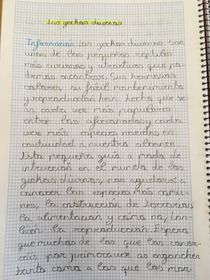 Los geckos diurnos
Información: Los geckos diurnos son
unos de los pequeños reptiles
más curiosos y atractivos que po-
demos encontrar. Sus hermosos
colores, su fácil mantenimiento
y reproducción han hecho que se-
an cada vez más populares
entre los aficionados y cada
vez más especies nuevas en
cautividad a nuestro alcance.
Esta pequeña guía a modo de
intrucción en el mundo de los
geckos diurnos, nos ayudará a co-
nocer las especies más comu-
nes, la construcción de terrarios
la alimentación y como no, tam-
bién la reproducción. Espero
que muchos de los que los cono-
cáis por primera vez os enganchen
tanto como a los que los man-